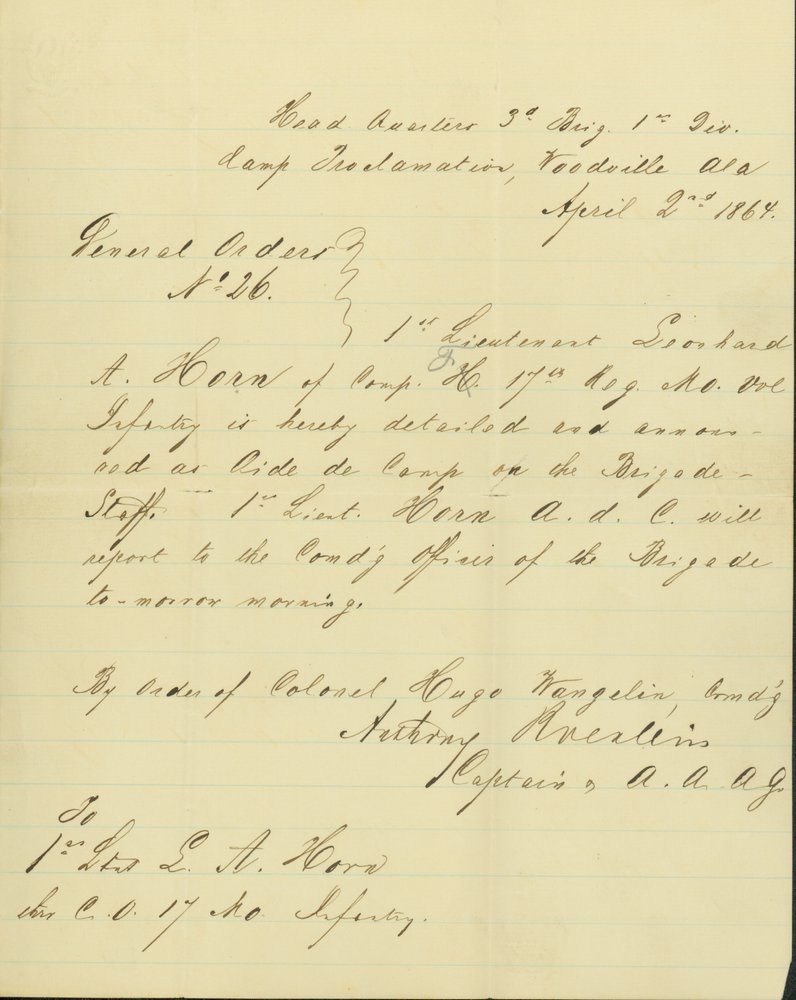 Head Quarters 3d Brig. 1st Div.
Camp Proclamation, Woodville Ala
April 2nd 1864.
General Orders
No 26.
1st Lieutenant Leonhard
A. Horn of Comp. H. F 17th Reg. Mo. Vol
Infantry is hereby detailed and announ-
ced as Aide de Camp on the Brigade-
Staff. — 1st Lieut. Horn A. d. C. will
report to the Comd'g Officer of the Brigade
to-morrow morning.
By Order of Colonel Hugo Wangelin, Comd'g
Anthony
Captain & A. A. A G.
To
1st Lieut L. A. Horn
thro C. O. 17 Mo. Infantry.